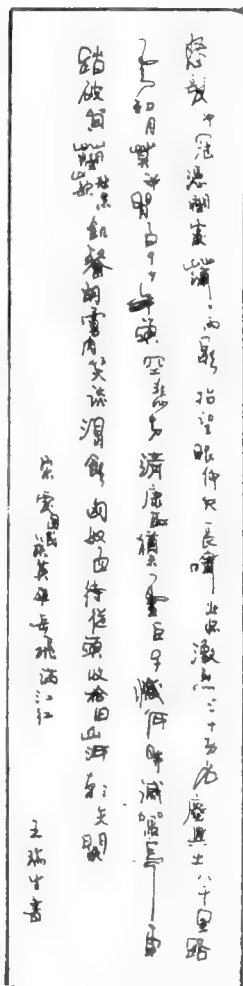 怒髮冲冠憑闌處瀟瀟雨歇抬望眼仰天長嘯壯懷激烈三十功名塵與土八千里路
雲和月莫等閒白了少年頭空悲切靖康恥猶未雪臣子憾何時滅駕長車
踏破賀蘭山缺壯志飢餐胡虜肉笑談渴飲匈奴血待從頭收拾舊山河朝天闕
宋民族英雄岳飛滿江紅
王瑞生書